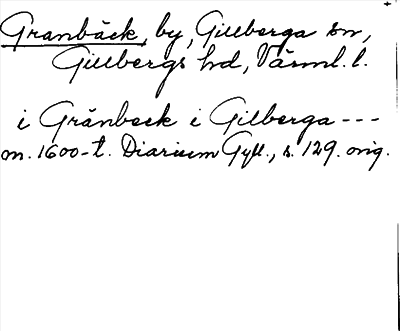 Granbäck, by, Gillberga sn,
Gillbergs hd, Värml. l.
i Gränbeck i Gilberga ---
m. 1600-t. Diarium Gyll., s. 129. orig.